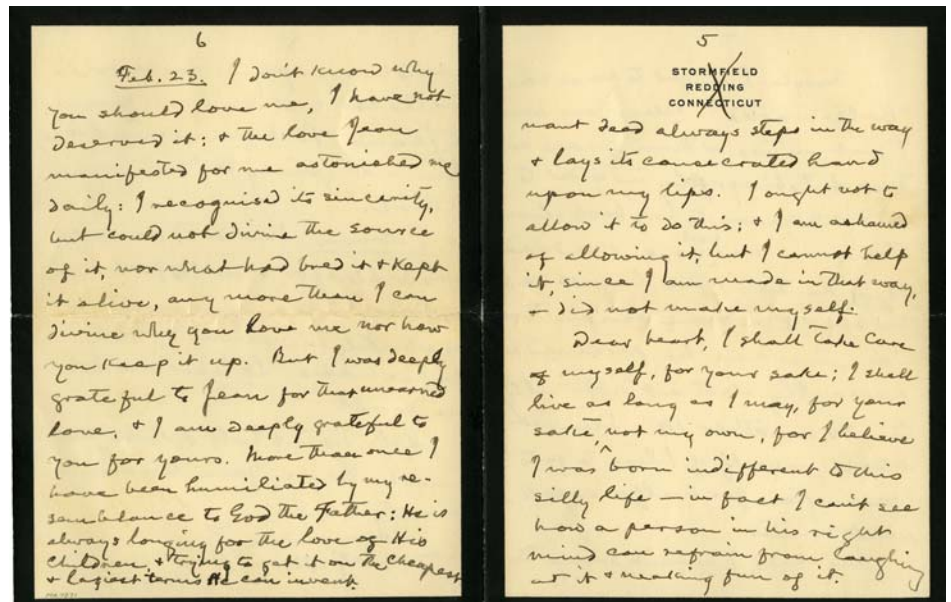 6
Feb. 23. I don't know why
you should love me, I have not
deserved it; & the love Jean
manifested for me astonished me
daily: I recognised its sincerity,
but could not divine the source
of it, nor what had bred it & kept
it alive, any more than I can
divine why you love me nor how
you keep it up. But I was deeply
grateful to Jean for that unearned
love, & I am deeply grateful to
you for yours. More than once I
have been humiliated by my re-
semblance to God the Father: He is
always longing for the love of His
children & trying to get it on the cheapest
& laziest terms He can invent.
5
STORMFIELD
REDDING
CONNECTICUT
nant deed always steps in the way
& lays its consecrated hand
upon my lips. I ought not to
allow it to do this; & I am ashamed
of allowing it, but I cannot help
it, since I am made in that way,
& did not make myself.
Dear heart, I shall take care
of myself, for your sake; I shall
live as long as I may, for your
sake, not my own, for I believe
I was born indifferent to this
silly life — in fact I can't see
how a person in his right
mind can refrain from laughing
at it & making fun of it.